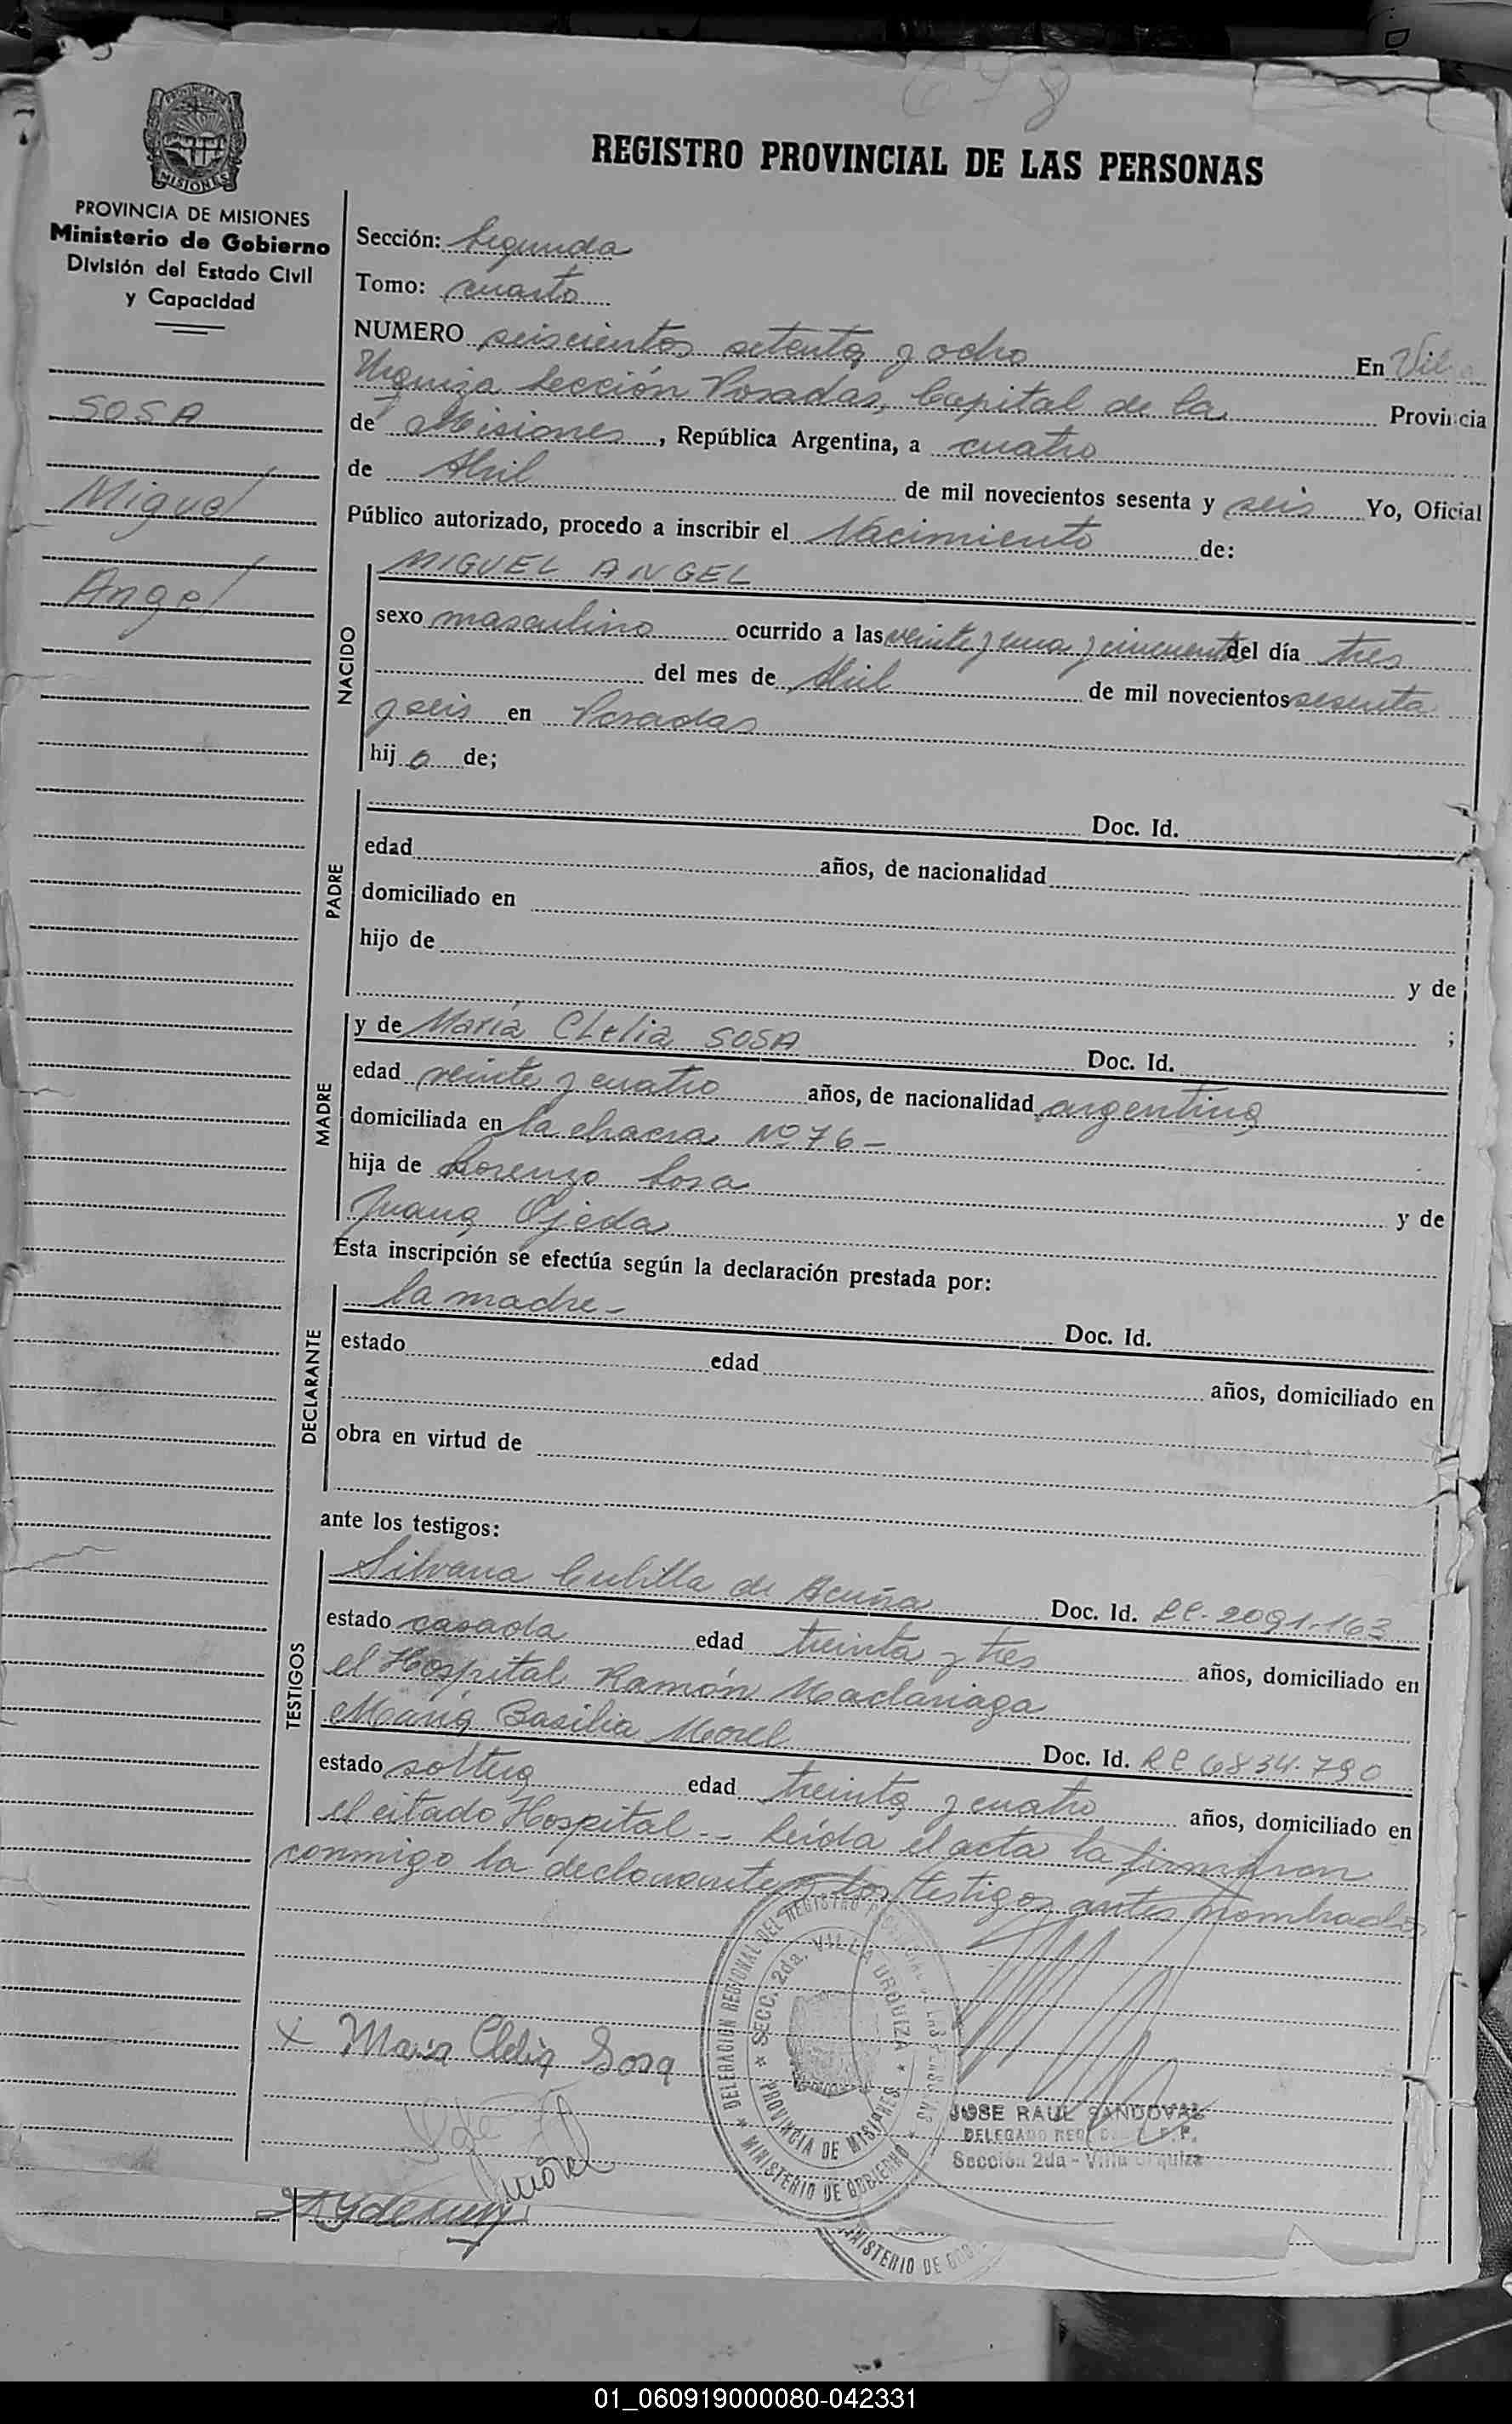 678
REGISTRO PROVINCIAL DE LAS PERSONAS
PROVINCIA DE MISIONES
MISIONES
PROVINCIA DE MISIONES
Ministerio de Gobierno
División del Estado Civil
y Capacidad
SOSA
Miguel
Angel
Sección: Segunda
Tomo: cuarto
NUMERO seiscientos setenta y ocho En Vil
Urquiza Sección Posadas, Capital de la Provincia
de Misiones, República Argentina, a cuatro
de Abril de mil novecientos sesenta y seis Yo, Oficial
Público autorizado, procedo a inscribir el Nacimiento de:
NACIDO
MIGUEL ANGEL
sexo masculino ocurrido a las veinte y una y cincuenta del día tres
del mes de Abril de mil novecientos sesenta
y seis en Posadas
hij o de;
PADRE
Doc. Id.
edad años, de nacionalidad
domiciliado en
hijo de
y de
;
MADRE
y de María CLelia SOSA Doc. Id.
edad veinte y cuatro años, de nacionalidad argentina
domiciliada en la chacra Nº 76 -
hija de Lorenzo Sosa y de
Juana Ojeda
Esta inscripción se efectúa según la declaración prestada por:
DECLARANTE
la madre - Doc. Id.
estado edad años, domiciliado en
obra en virtud de
ante los testigos:
TESTIGOS
Silvana Cubilla de Acuña Doc. Id. LC. 2091.163
estado casada edad treinta y tres años, domiciliado en
el Hospital Ramón Madariaga
María Basilia Morel Doc. Id. LC 6834.790
estado soltera edad treinta y cuatro años, domiciliado en
el citado Hospital -- Leída el acta la firmaron
conmigo la declarante y los testigos antes nombrados
DELEGACION REGIONAL DEL REGISTRO PROVINCIAL DE LAS PERSONAS
* SECC. 2da. VILLA URQUIZA *
PROVINCIA DE MISIONES
* MINISTERIO DE GOBIERNO *
x Maria Clelia Sosa
JOSE RAUL SANDOVAL
DELEGADO REG
Sección 2da - Villa Urquiza
Morel
MISTERIO DE GOB
01_060919000080-042331